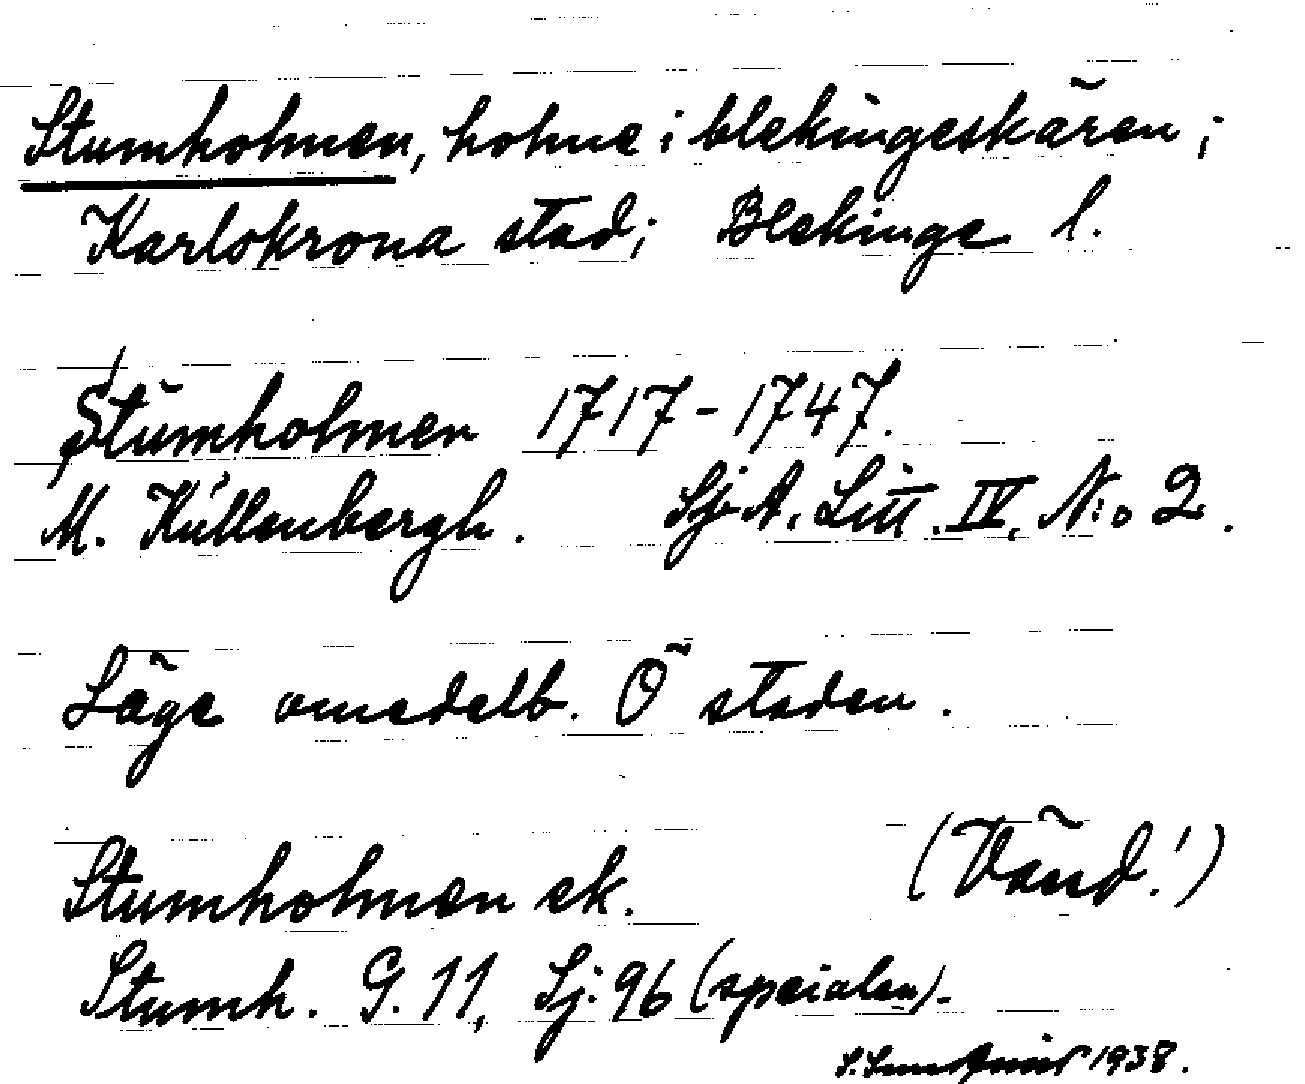 Stumholmen, holme i blekingeskären;
Karlskrona stad; Blekinge l.
Stumholmen 1717-1747.
M. Kullenbergh. Sj.A. Litt. IV, N:o 2.
Läge omedelb. Ö staden.
Stumholmen ek.
(Vänd!)
Stumh. G. 11, Sj: 96 (speialen).
1938.